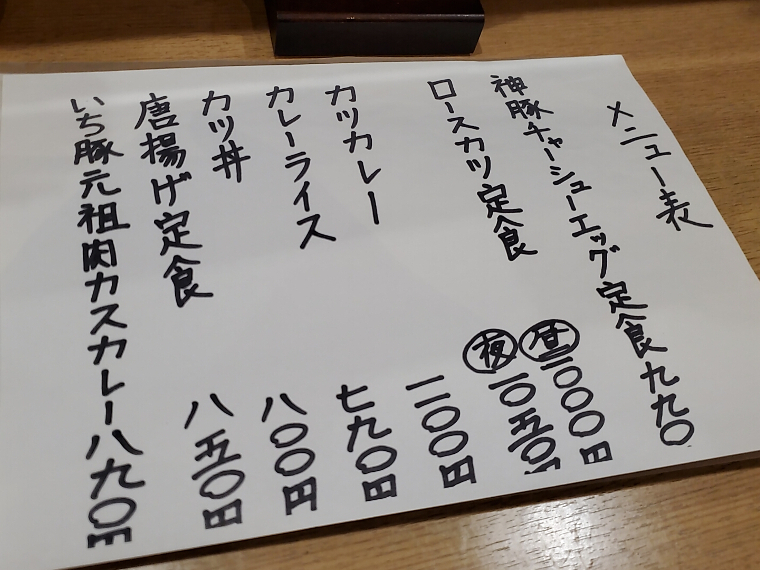 メニュー表
神豚チャーシューエッグ定食 九九〇
ロースカツ定食
昼 一〇〇〇円
夜 一〇五〇円
カツカレー 一一〇〇円
カレーライス 七九〇円
カツ丼 八〇〇円
唐揚げ定食 八五〇円
いち豚元祖肉カスカレー 八九〇円